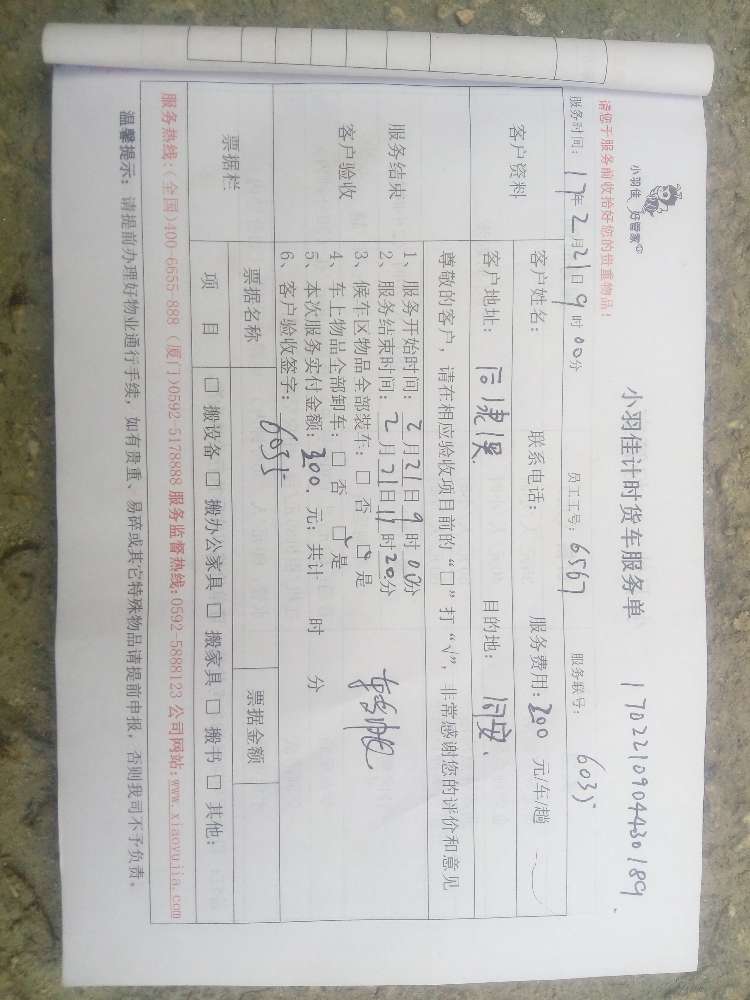 小羽佳 好管家
小羽佳计时货车服务单
1702210904430189
请您于服务前收拾好您的贵重物品！
服务时间：17年2月21日9时00分 员工工号：6567 服务联号：6035
客户资料
客户姓名： 联系电话： 服务费用：200 元/车/趟
客户地址： 目的地：同安
尊敬的客户，请在相应验收项目前的“□”打“√”，非常感谢您的评价和意见
服务结束
客户验收
1、服务开始时间：2月21日9时00分
2、服务结束时间：2月21日11时20分
3、候车区物品全部装车：□ 否 ☑ 是
4、车上物品全部卸车：□ 否 ☑ 是
5、本次服务实付金额：200.元；共计 时 分
6、客户验收签字：6035
票据栏
票据名称 票据金额
项 目 □ 搬设备 □ 搬办公家具 □ 搬家具 □ 搬书 □ 其他：
服务热线：（全国）400-6655-888（厦门）0592-5178888 服务监督热线：0592-5888123 公司网站：www.xiaoyujia.com
温馨提示：请提前办理好物业通行手续，如有贵重、易碎或其它特殊物品请提前申报，否则我司不予负责。